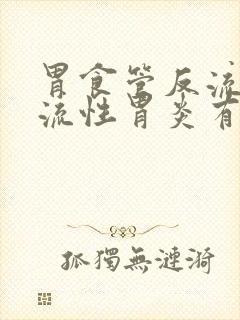 胃食管反流
流性胃炎有
孤獨無漣漪